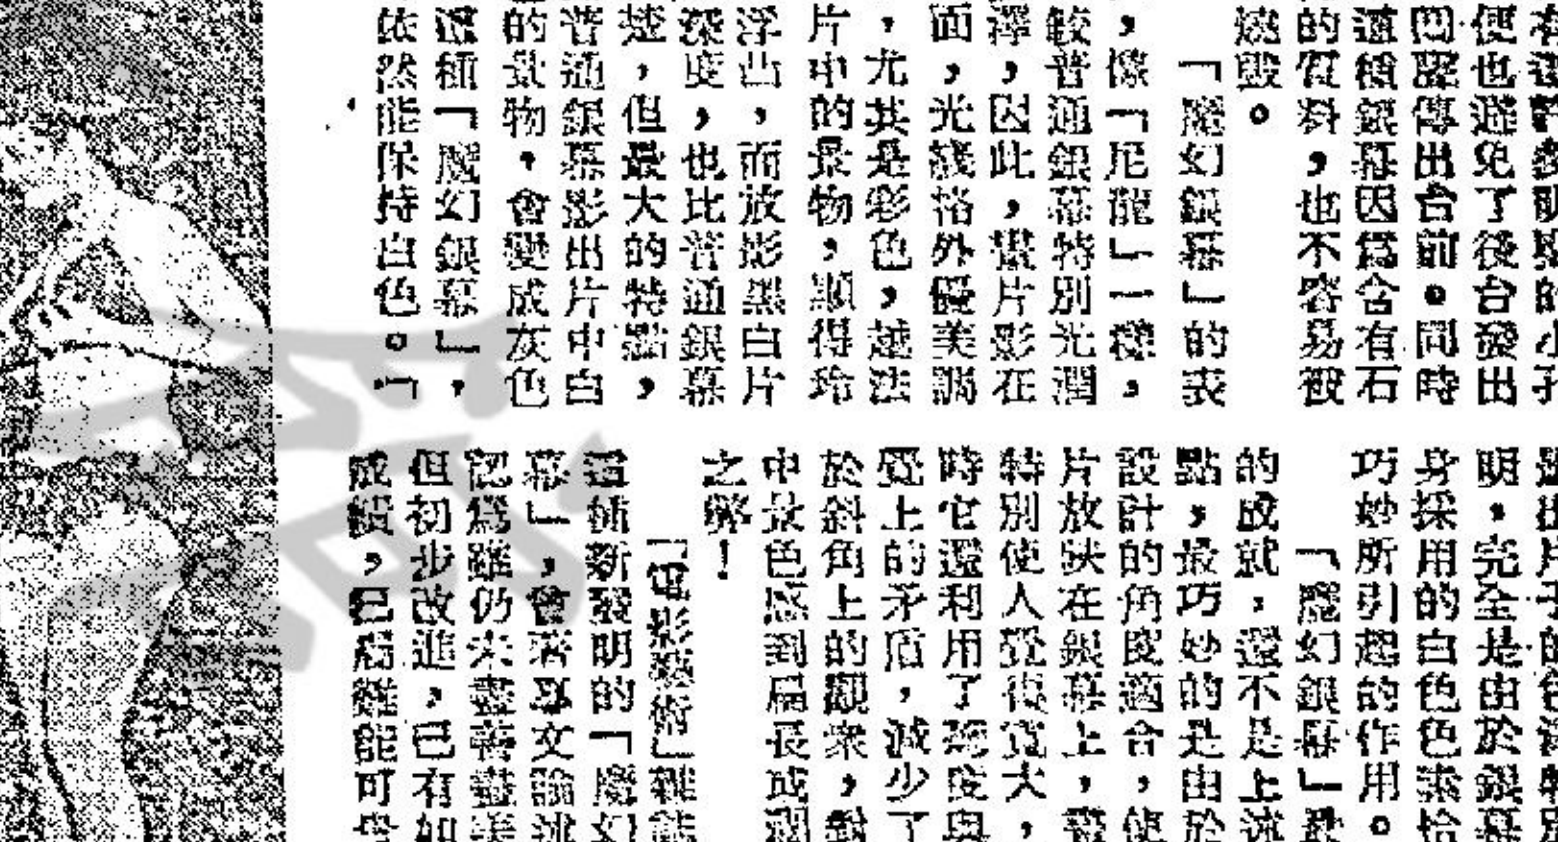 便也避免了後台發出
傳出台前。同時
這種銀幕因爲含有石
的質料，也不容易被
燒毀。
「魔幻銀幕」的表
，像「尼龍」一樣，
較普通銀幕特別光潤
澤，因此，影片影在
面，光線格外優美調
，尤其是彩色，越法
片中的景物，顯得玲
浮凸，而放影黑白片
深度，也比普通銀幕
楚，但最大的特點，
普通銀幕影出片中白
的景物，會變成灰色
這種「魔幻銀幕」，
依然能保持白色。
明，完全是由於銀幕
身採用的白色色素恰
巧妙所引起的作用。
「魔幻銀幕」
的成就，還不是上述
點，最巧妙的是由於
設計的角度適合，使
片放映在銀幕上，
特別使人覺得寬大，
時它還利用了與
覺上的矛盾，減少了
於斜角上的觀衆，對
中景色感到扁長或
之弊！
「電影藝術」雜誌
這種新發明的「魔幻
幕」，曾著專文論述
認爲雖仍未盡善盡美
但初步改進，已有如
成績，已屬難能可貴